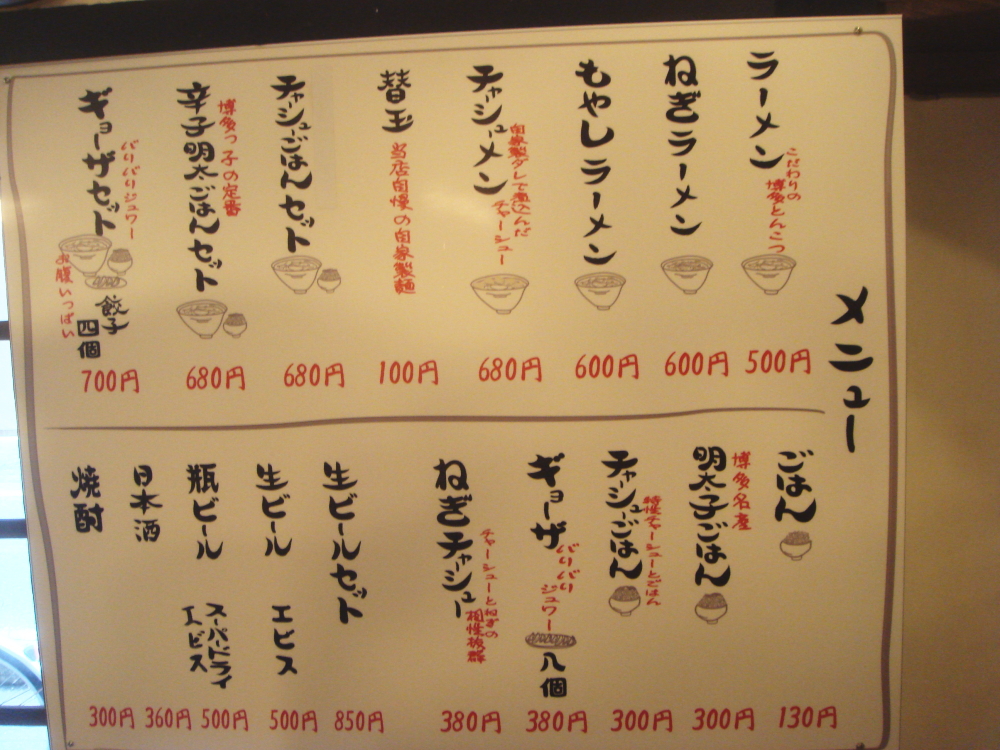 メニュー
ラーメン
こだわりの
博多とんこつ
500円
ねぎラーメン
600円
もやしラーメン
600円
チャーシューメン
自家製ダレで煮込んだ
チャーシュー
680円
替玉
当店自慢の自家製麺
100円
チャーシューごはんセット
680円
博多っ子の定番
辛子明太ごはんセット
680円
ギョーザセット
パリパリジュワー
お腹いっぱい
餃子
四個
700円
ごはん
130円
博多名産
明太子ごはん
300円
チャーシューごはん
特性チャーシューとごはん
300円
ギョーザ
パリパリ
ジュワー
八個
380円
ねぎチャーシュー
チャーシューとねぎの
相性抜群
380円
生ビールセット
850円
生ビール
エビス
500円
瓶ビール
スーパードライ
エビス
500円
日本酒
360円
焼酎
300円